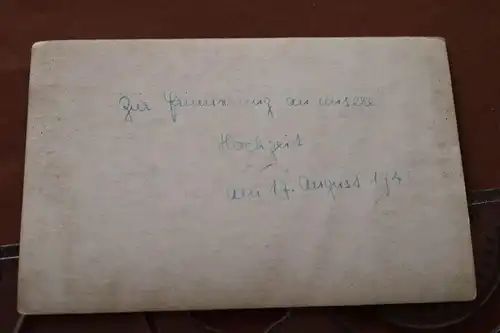 Zur Erinnerung an unsere
Hochzeit
am 17. August 194